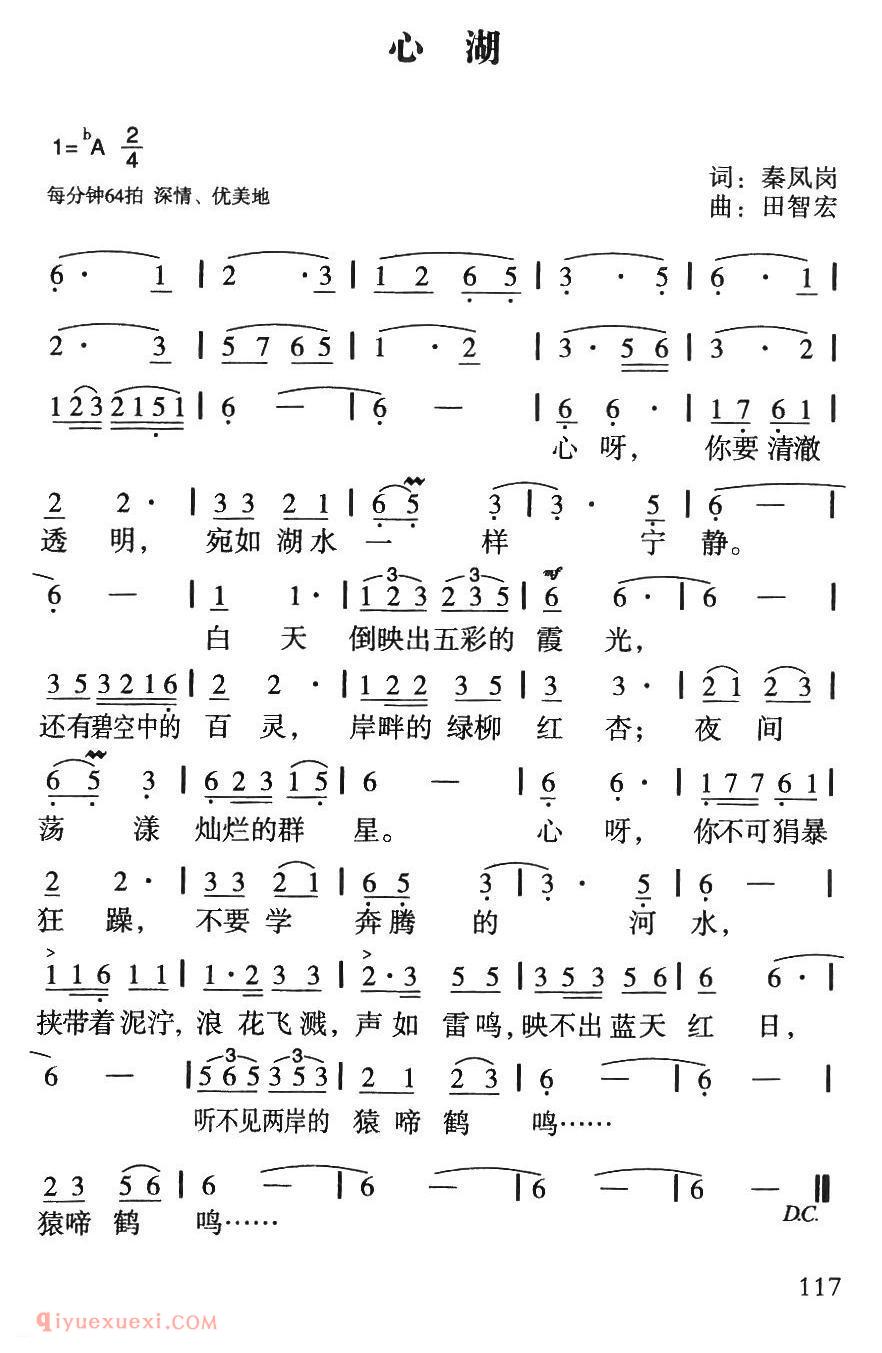 心 湖
1=ᵇA 2/4
每分钟64拍 深情、优美地
词：秦凤岗
曲：田智宏
6· 1 | 2 ·3 | 1 2 6 5 | 3 · 5 | 6 · 1 |
2· 3 | 5 7 6 5 | 1 · 2 | 3· 5 6 | 3 · 2 |
1 2 3 2 1 5 1 | 6 — | 6 — | 6 6 · | 1 7 6 1 |
心 呀， 你要 清澈
2 2 · | 3 3 2 1 | 6 5 3 | 3 · 5 | 6 — |
透 明， 宛如 湖水 一 样 宁 静。
6 — | 1 1· | 3 1 2 3 3 2 3 5 | mf 6 6· | 6 — |
白 天 倒映出五彩的 霞 光，
3 5 3 2 1 6 | 2 2 · | 1 2 2 3 5 | 3 3· | 2 1 2 3 |
还有碧空中的 百 灵， 岸畔的 绿柳 红 杏； 夜 间
6 5 3 | 6 2 3 1 5 | 6 — | 6 6· | 1 7 7 6 1 |
荡 漾 灿烂的群 星。 心 呀， 你不可狷暴
2 2· | 3 3 2 1 | 6 5 3 | 3· 5 | 6 — |
狂 躁， 不要 学 奔腾 的 河 水，
> 1 1 6 1 1 | 1·2 3 3 | > 2·3 5 5 | 3 5 3 5 6 | 6 6· |
挟带着 泥泞， 浪 花飞 溅， 声如 雷鸣，映不出蓝天 红 日，
6 — | 3 5 6 5 3 3 5 3 | 2 1 2 3 | 6 — | 6 — |
听不见两岸的 猿 啼 鹤 鸣……
2 3 5 6 | 6 — | 6 — | 6 — | 6 — ‖
猿啼 鹤 鸣…… D.C.
117
qiyuexuexi.com